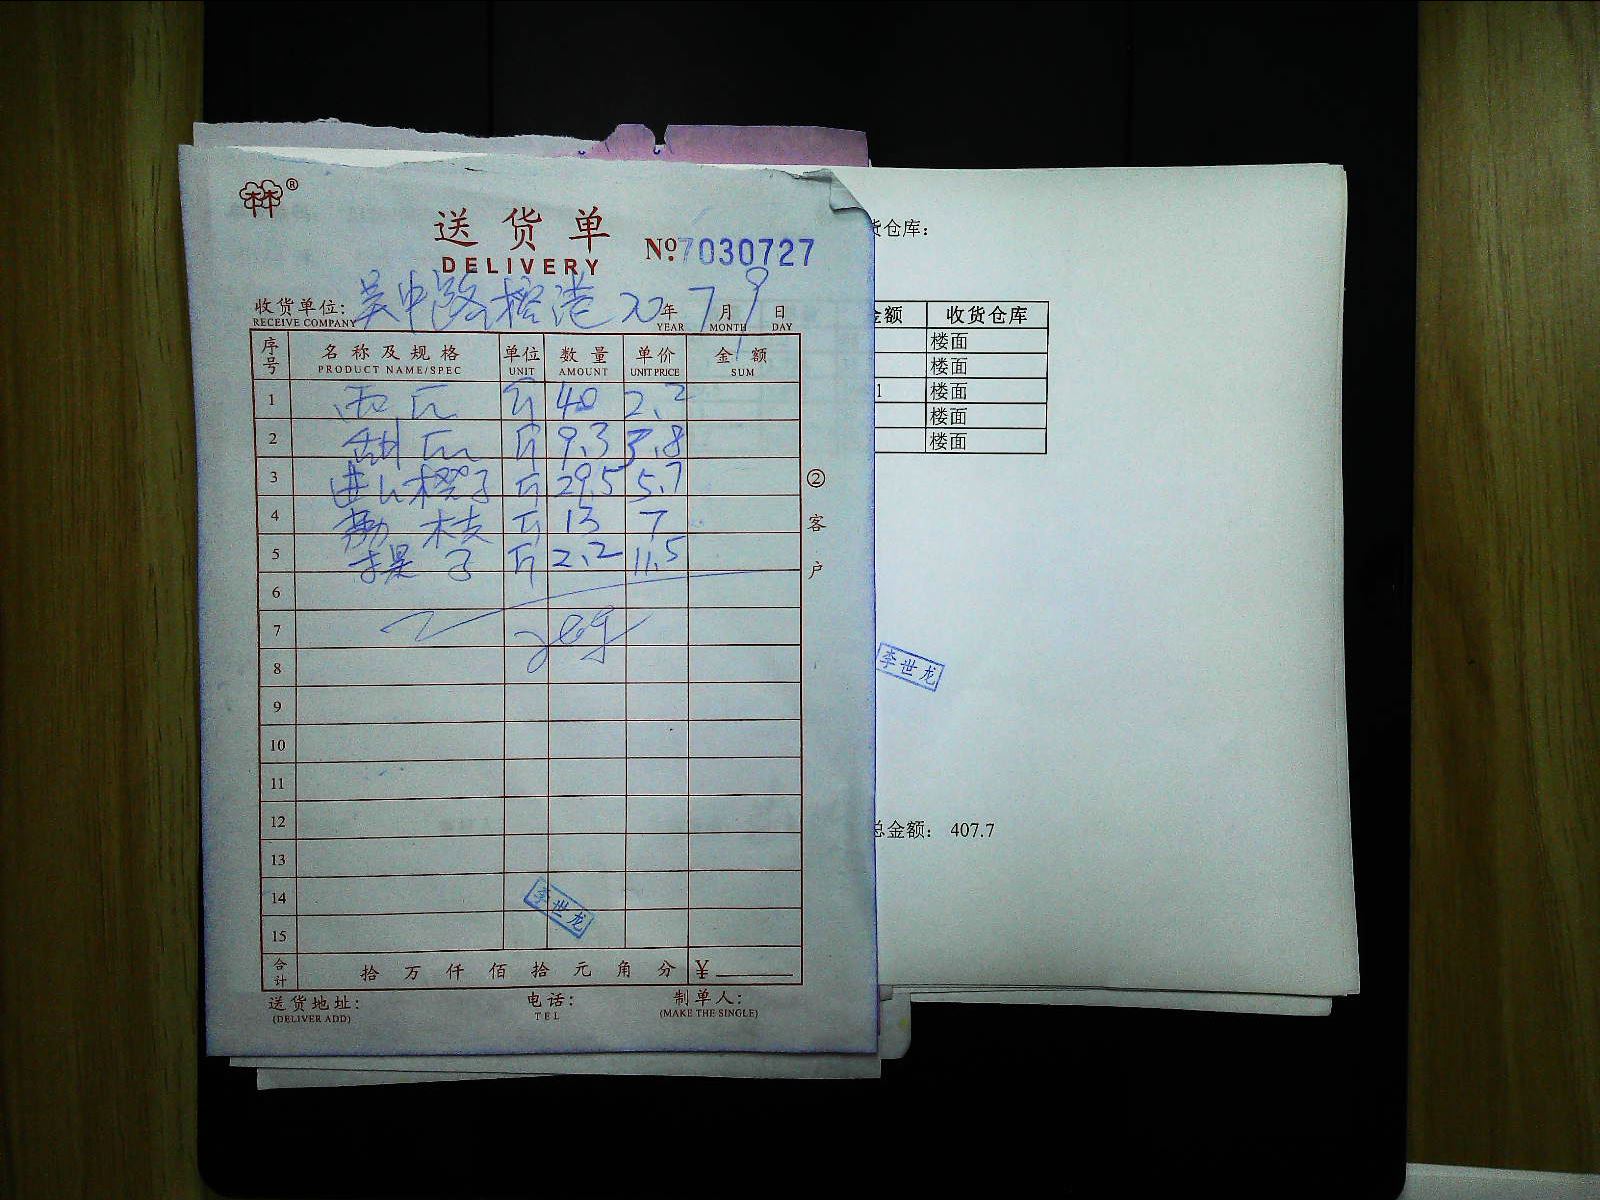 林®
送货单
DELIVERY
№ 7030727
收货单位: 吴中路榕港 20年 7月 9日
RECEIVE COMPANY YEAR MONTH DAY
序号 名称及规格 单位 数量 单价 金额
PRODUCT NAME/SPEC UNIT AMOUNT UNIT PRICE SUM
1 西瓜 斤 40 2.2
2 甜瓜 斤 9.3 3.8
3 进口橙子 斤 29.5 5.7
4 荔枝 斤 13 7
5 提子 斤 2.2 11.5
6
7
8
9
10
11
12
13
14
15
李世龙
合计 拾万仟佰拾元角分 ¥
送货地址: 电话: 制单人:
(DELIVER ADD) TEL (MAKE THE SINGLE)
②客户
货仓库:
金额 收货仓库
楼面
楼面
1 楼面
楼面
楼面
李世龙
总金额: 407.7